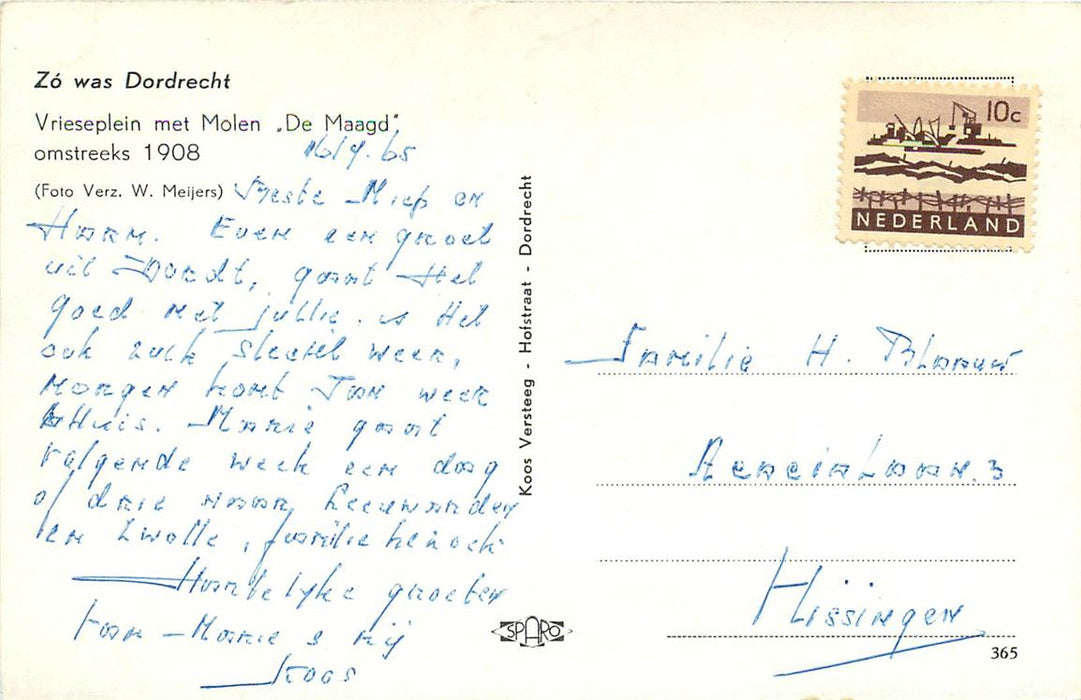 Zó was Dordrecht
Vrieseplein met Molen „De Maagd"
omstreeks 1908
(Foto Verz. W. Meijers)
16/9.65
Beste Miep en
Harm. Even een groet
uit Dordt, gaat Het
goed met jullie. is Het
ook zulk slecht weer,
morgen komt Jan weer
tHuis. Marie gaat
volgende week een dag
of drie naar Leeuwarden
en Zwolle, familie
Hartelijke groeten
Jan - Marie &
Koos
Koos Versteeg - Hofstraat - Dordrecht
SPARO
10c
NEDERLAND
Familie H. Blaauw
Acacialaan. 3
Hissingen
365